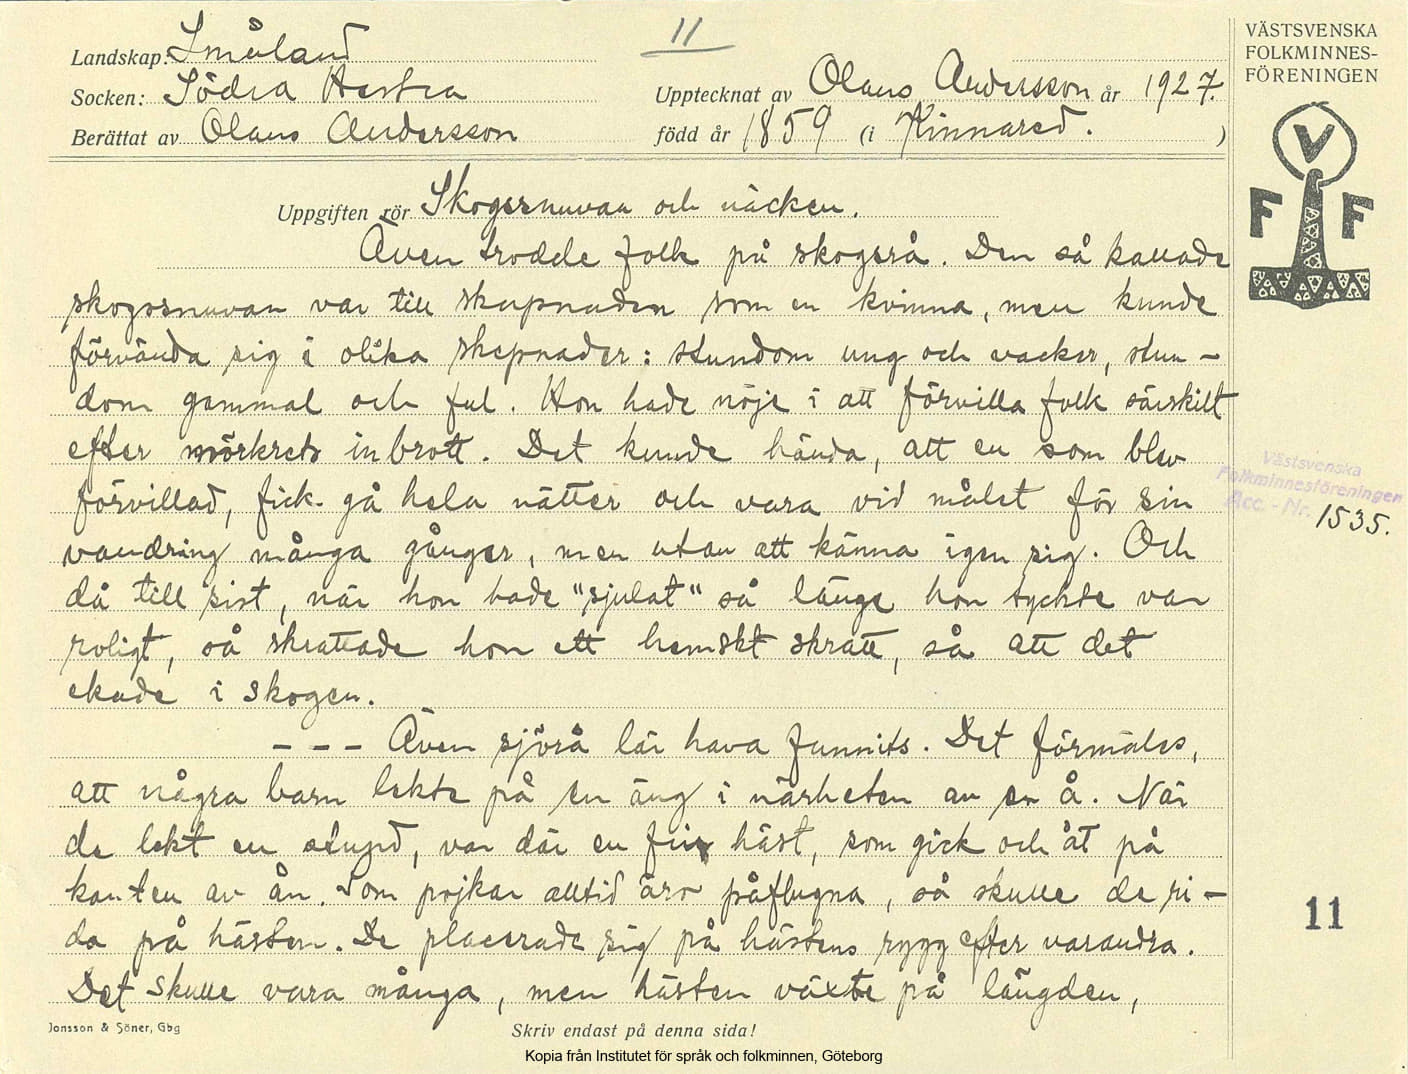 11
Landskap: Småland
Socken: Södra Hestra
Upptecknat av Olaus Andersson år 1927.
Berättat av Olaus Andersson
född år 1859 (i Kinnared. )
VÄSTSVENSKA
FOLKMINNES-
FÖRENINGEN
V
F F
Uppgiften rör Skogssnuvan och näcken.
Även trodde folk på skogsrå. Den så kallade
skogssnuvan var till skapnaden som en kvinna, men kunde
förvända sig i olika skepnader: stundom ung och vacker, stun-
dom gammal och ful. Hon hade nöje i att förvilla folk särskilt
efter mörkrets inbrott. Det kunde hända, att en som blev
förvillad, fick gå hela nätter och vara vid målet för sin
vandring många gånger, men utan att känna igen sig. Och
då till sist, när hon hade "sjulat" så länge hon tyckte var
roligt, så skrattade hon ett hemskt skratt, så att det
ekade i skogen.
- - - Även sjörå lär hava funnits. Det förmäles,
att några barn lekte på en äng i närheten av en å. När
de lekt en stund, var där en fin häst, som gick och åt på
kanten av ån. Som pojkar alltid äro påflugna, så skulle de ri-
da på hästen. De placerade sig på hästens rygg efter varandra.
Det skulle vara många, men hästen växte på längden,
Västsvenska
Folkminnesföreningen
Acc. - Nr. 1535.
11
Jonsson & Söner, Gbg
Skriv endast på denna sida!
Kopia från Institutet för språk och folkminnen, Göteborg